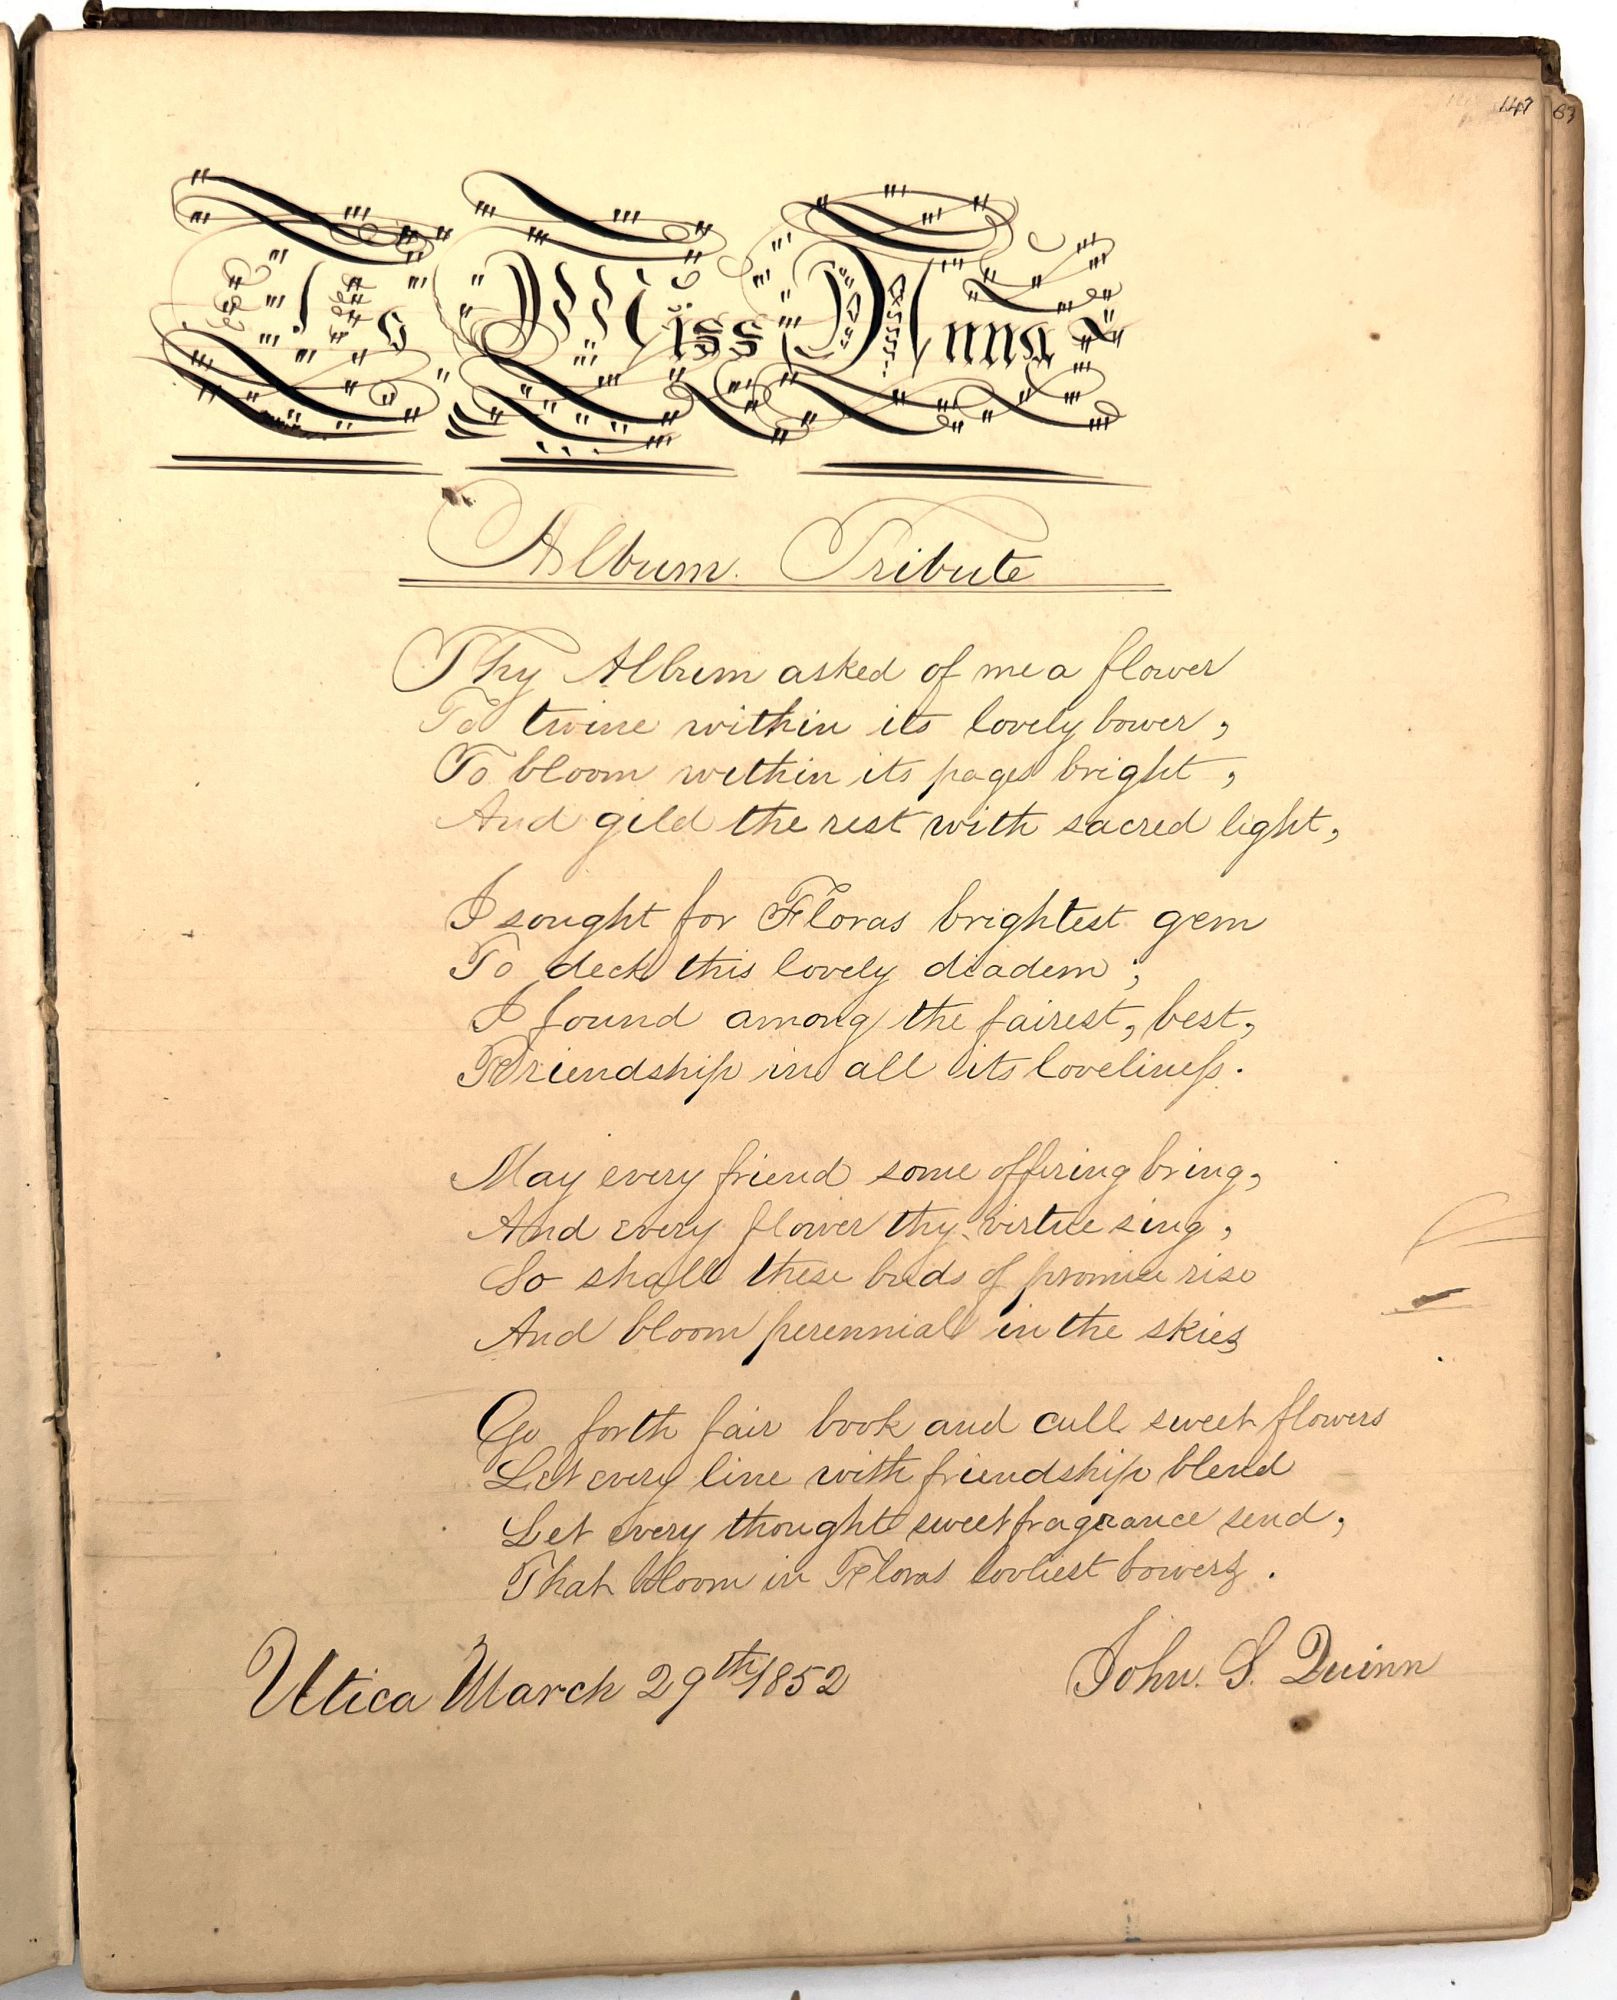 147
67
To Miss Anna
Album Tribute
Thy Album asked of me a flower
To twine within its lovely bower,
To bloom within its pages bright,
And gild the rest with sacred light,
I sought for Floras brightest gem
To deck this lovely diadem;
I found among the fairest, best,
Friendship in all its loveliness.
May every friend some offering bring,
And every flower thy virtue sing,
So shall these buds of promise rise
And bloom perennial in the skies
Go forth fair book and cull sweet flowers
Let every line with friendship blend
Let every thought sweet fragrance send,
That bloom in Floras lovliest bowers.
Utica March 29th 1852
John. S. Quinn